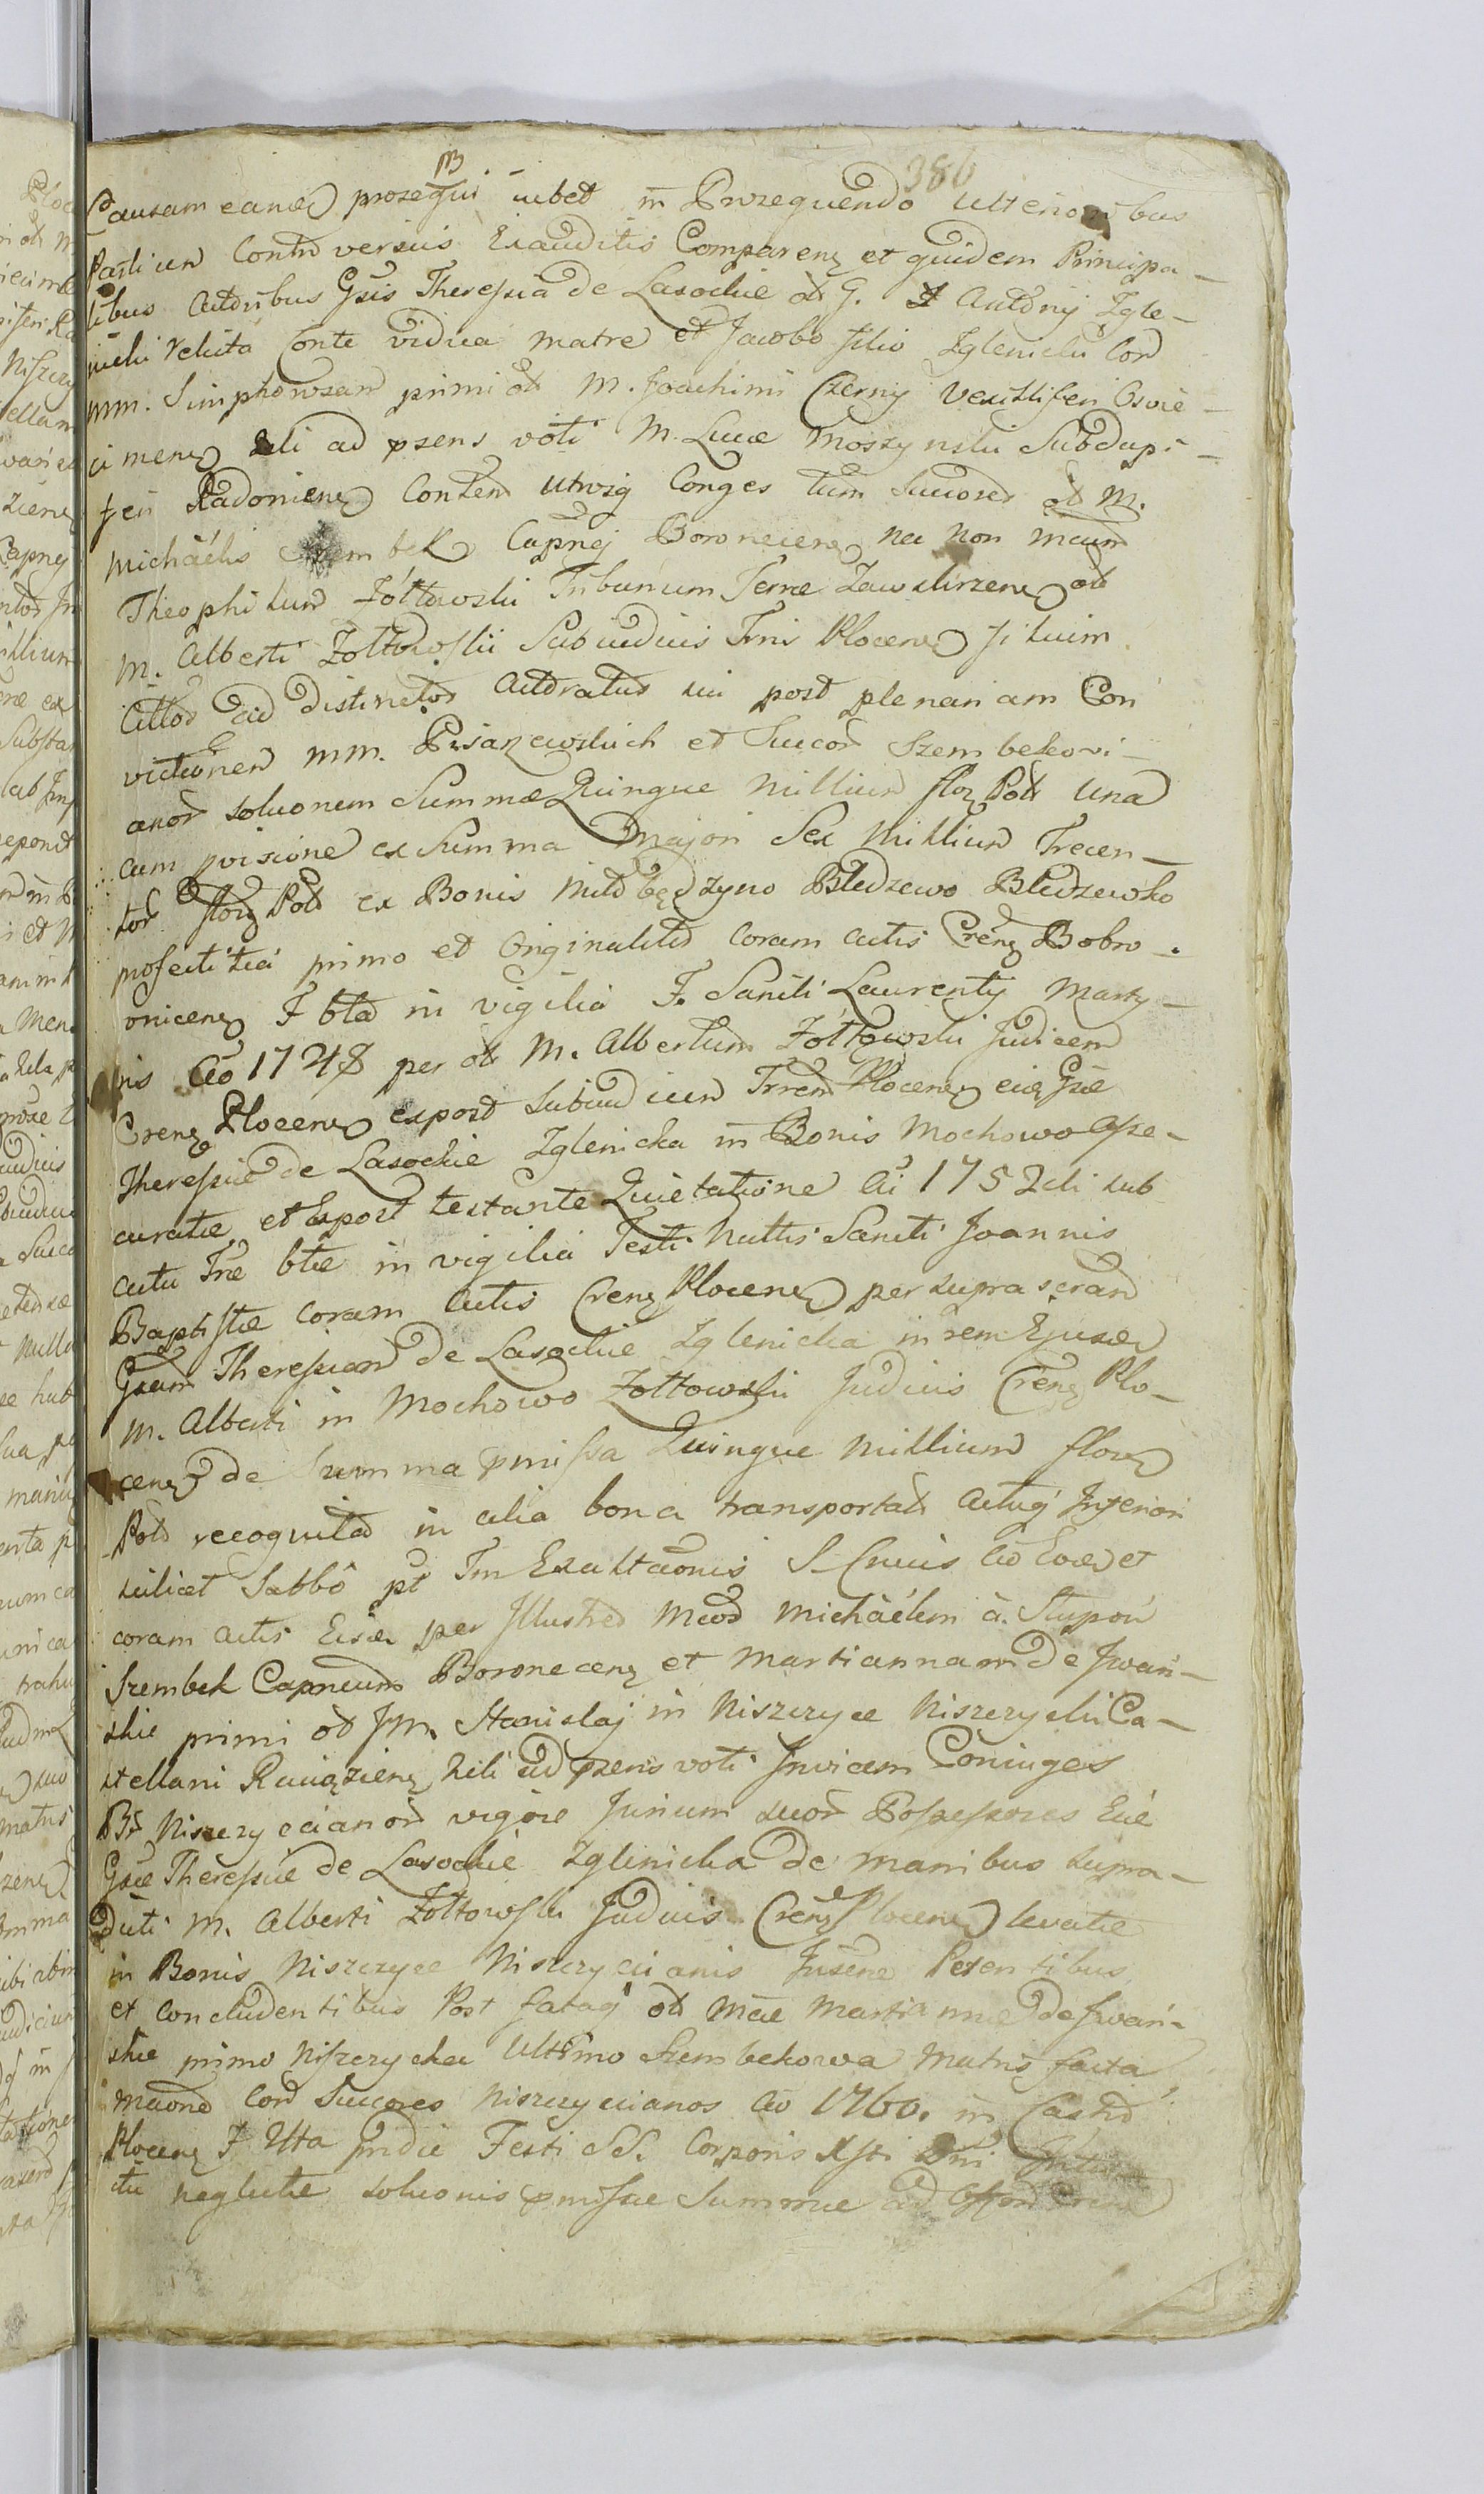 386
Causam eand prosequi iubet in Prosequendo Ulterioribus
Partium Controversiis Exauditis Comparen et quidem Principa-
libus Actoribus Gsis Theressia de Lasockie olt G. Antonij Zgle-
nicki relicta Conte vidua matre et Jacobo filio Zglenicki Con
mm. Simphorosam primi olt M. Joachimi Czerny Vexilliferi Oswie-
cimen 2di ad psens voti M. Lucæ Moszynski Subdapi-
feri Radomien Contem utrosq Conges tum Succores olt M.
Michaelis Szembek Capnej Boroneciens nec non Mcum
Theophilum Żółtowski Tribunum Terræ Zawskrzen olt
M. Alberti Żółtowski Subiudicis Trris Plocens filium
Cittos ad distinctos Actoratus sui post plenariam Con
victionem MM. Pisarzewskich et Succor Szembekovi-
anor soluonem Summæ Quinque Millium flor Pol una
cum pvisione ex Summa Majori Sex Millium Trecen-
tor flor Pol ex Bonis Niedbędzyno Bledzewo Bledzewko
profectitia primo et Originalit coram Actis Cren Bobro-
nicen F bta in vigilia F. Sancti Laurentij Marty-
ris Ao 1748 per olt M. Albertum Żółtowski Judicem
Cren Plocens expost Subiudicem Trrem Plocens eid Gsæ
Theressiæ de Lasockie Zglenicka in Bonis Mochowo Asse-
curatæ et Expost testante Quietatione Ai 1752di sub
actu Fræ btæ in vigilia Festi Nattis Sancti Joannis
Baptistæ coram Actis Cren Plocens per supra scram
Gsam Theressiam de Lasockie Zglenicka in rem Ejusd
M. Alberti in Mochowo Żółtowski Judicis Cren Plo-
cens de Summa pmissa Quinque Millium flor
Pol recognita in alia bona transportat Actuq Inferiori
scilicet Sabbo pt Fm Exaltaonis S. Crucis Ao Eod et
coram Actis Eisd per Illustrem Mcum Michaelem à Słupow
Szembek Capneum Boronecens et Mariannam de Iwań-
skie primi olt JM. Stanislaj in Niszczyce Niszczycki Ca-
stellani Raciążiens 2di ad psens voti Invicem Coniuges
Br Niszczycianor vigore Jurium suor Possessores Eid
Gsæ Theressiæ de Lasockie Zglenicka de manibus supra-
dicti M. Alberti Żółtowski Judicis Cren Plocens levatæ
in Bonis Niszczyce Niszczycianis Inscne Petentibus
et Concludentibus Post fataq olt Mcæ Mariannæ de Iwań-
skie primo Niszczycka Ultimo Szembekowa Matris facta
maone Con Succores Niszczycianos Ao 1760. in Castro
Plocens F IIIIta pridie Festi SS. Corporis Xsti Dni
neglectæ soluonis pmissæ Summæ ad